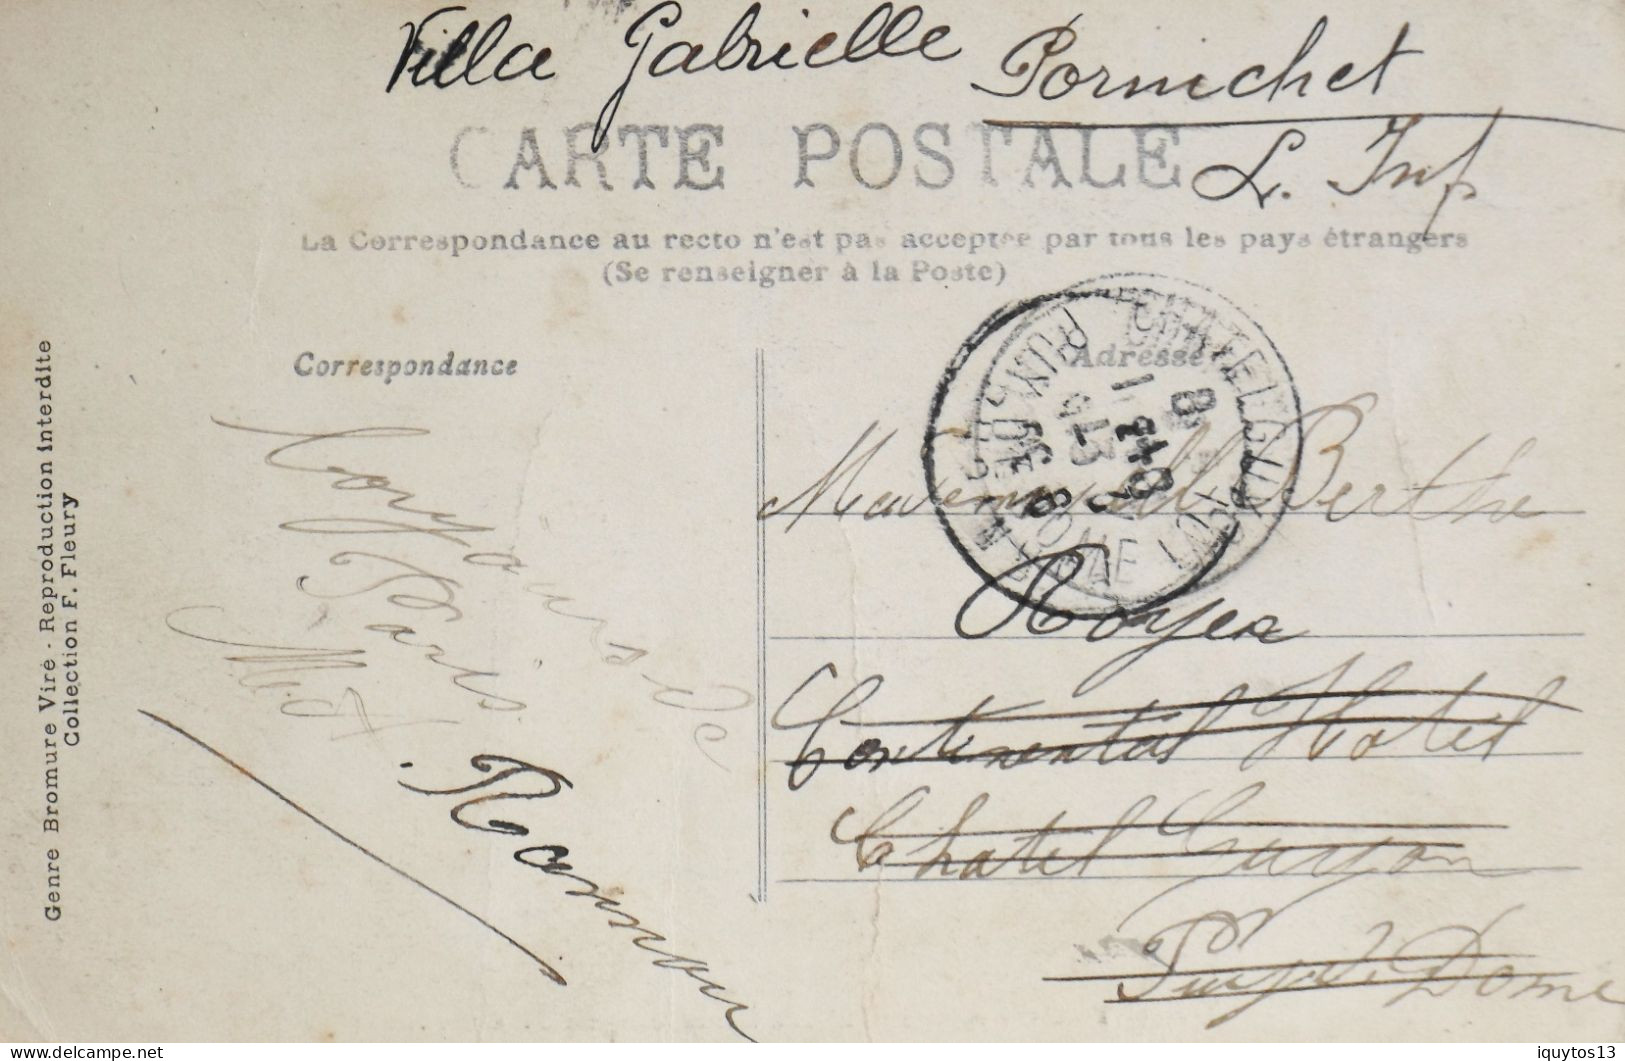 Villa Gabrielle Pornichet
L. Inf
CARTE POSTALE
La Correspondance au recto n'est pas acceptée par tous les pays étrangers
(Se renseigner à la Poste)
Correspondance
Adresse
CHATELGUYON
PUY-DE-DOME
Mademoiselle Berthe
Royer
Continental Hotel
Chatel Guyon
Puy d. Dome
de
Paris
Genre Bromure Viré - Reproduction interdite
Collection F. Fleury
Delcampe.net
iquytos13